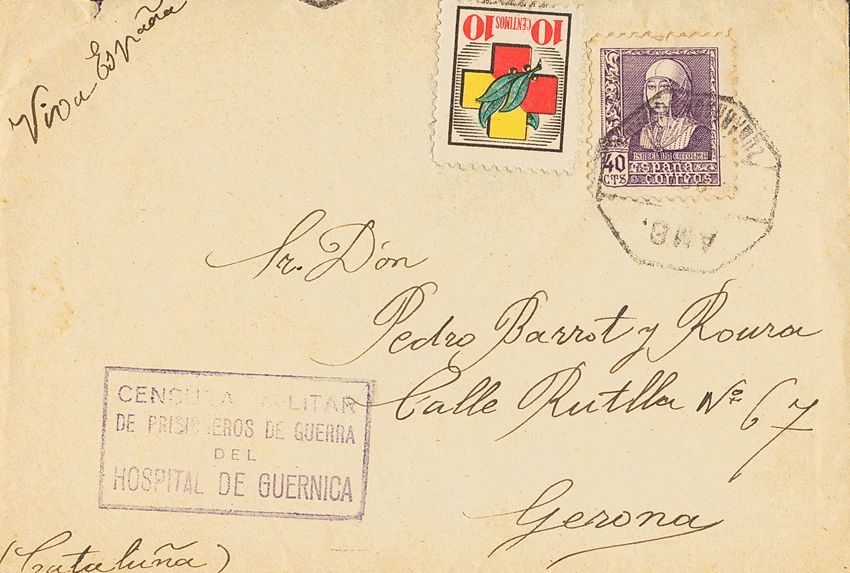 Viva España
10 CENTIMOS 10
ISABEL LA CATOLICA
40 CTS
ESPAÑA
CORREOS
AMB.
Sr. Dón
Pedro Barrot y Roura
Calle Rutlla Nº 67
Gerona
(Cataluña)
CENSURA MILITAR
DE PRISIONEROS DE GUERRA
DEL
HOSPITAL DE GUERNICA